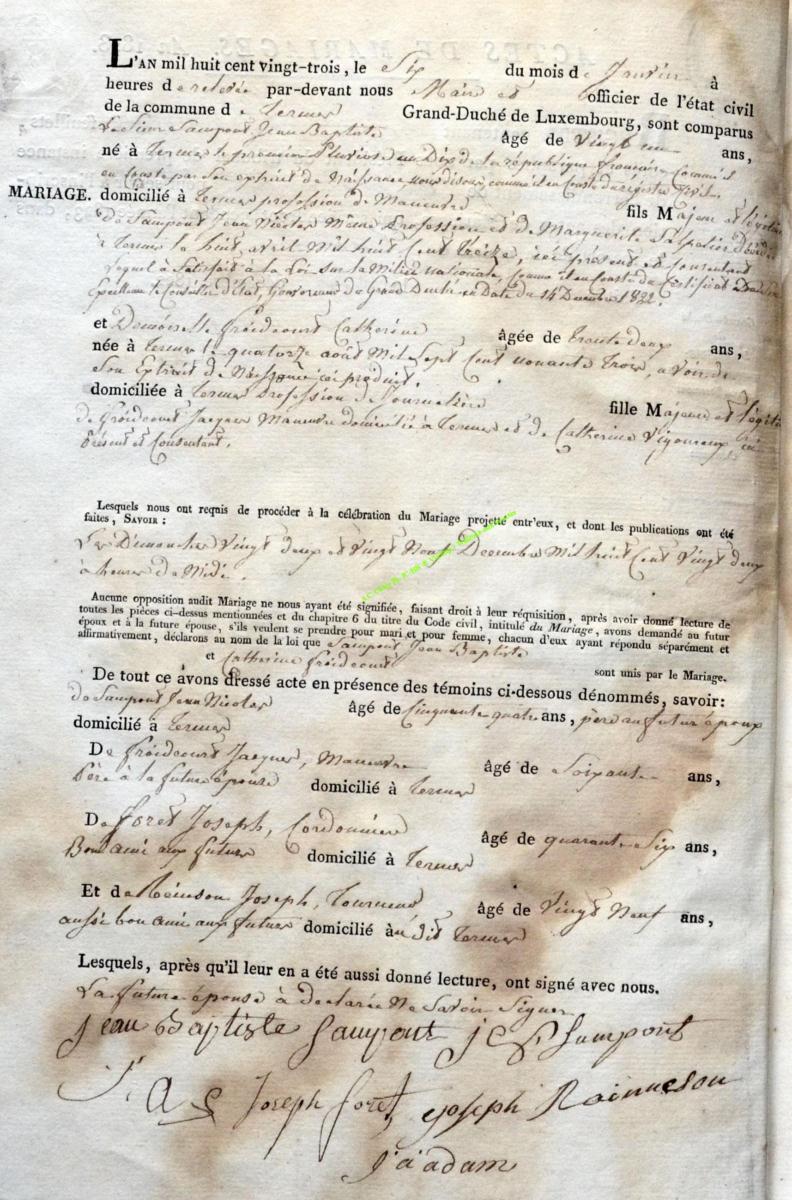 L'AN mil huit cent vingt-trois, le Six du mois de Janvier à
heures de relevée par-devant nous Maire et officier de l'état civil
de la commune de Termes Grand-Duché de Luxembourg, sont comparus
Le Sieur Sampont Jean Baptiste âgé de vingt un ans,
né à Termes le premier Pluviose an Dix de la république française Comme il
en Conste par Son extrait de Naissance
MARIAGE. domicilié à Termes profession de Manœuvre fils Majeur et légitime
De Sampont Jean Nicolas Même Profession et de Marguerite décédée
à Termes le huit avril Mil huit Cent treize, ici présent et Consentant
lequel à Satisfait à la Loi Sur la Milice nationale, Comme il en Conste du Certificat
Conseiller d'Etat, Gouverneur du Grand Duché en Date du 14 Decembre 1822.
et Demoiselle froidcourt Catherine âgée de trente deux ans,
née à Termes le quatorze août Mil Sept Cent nonante trois, a voir de
Son Extrait de Naissance ici produit.
domiciliée à Termes profession de Journalière fille Majeure et légitime
de froidcourt Jacques Manœuvre domicilié à Termes et de Catherine Vigoureux ici
Présent et Consentant.
Lesquels nous ont requis de procéder à la célébration du Mariage projetté entr'eux, et dont les publications ont été
faites, SAVOIR :
Les Dimanches Vingt deux et Vingt Neuf Decembre Mil huit Cent Vingt deux
à heures de Midi.
Aucune opposition audit Mariage ne nous ayant été signifiée, faisant droit à leur réquisition, après avoir donné lecture de
toutes les pièces ci-dessus mentionnées et du chapitre 6 du titre du Code civil, intitulé du Mariage, avons demandé au futur
époux et à la future épouse, s'ils veulent se prendre pour mari et pour femme, chacun d'eux ayant répondu séparément et
affirmativement, déclarons au nom de la loi que Sampont Jean Baptiste
et Catherine froidcourt sont unis par le Mariage.
De tout ce avons dressé acte en présence des témoins ci-dessous dénommés, savoir:
de Sampont Jean Nicolas âgé de Cinquante quatre ans, père au futur époux
domicilié à Termes
De froidcourt Jacques, Manœuvre âgé de Soixante ans,
Père à la future épouse domicilié à Termes
De foret Joseph, Cordonnier âgé de quarante Six ans,
Bon ami aux futurs domicilié à Termes
Et de Joseph, Tourneur âgé de Vingt Neuf ans,
aussi bon ami aux futurs domicilié au dit Termes
Lesquels, après qu'il leur en a été aussi donné lecture, ont signé avec nous.
La future épouse à declarée Ne Savoir Signer
Jean Baptiste Sampont J Sampont
Joseph foret Joseph Rainneson
J a adam